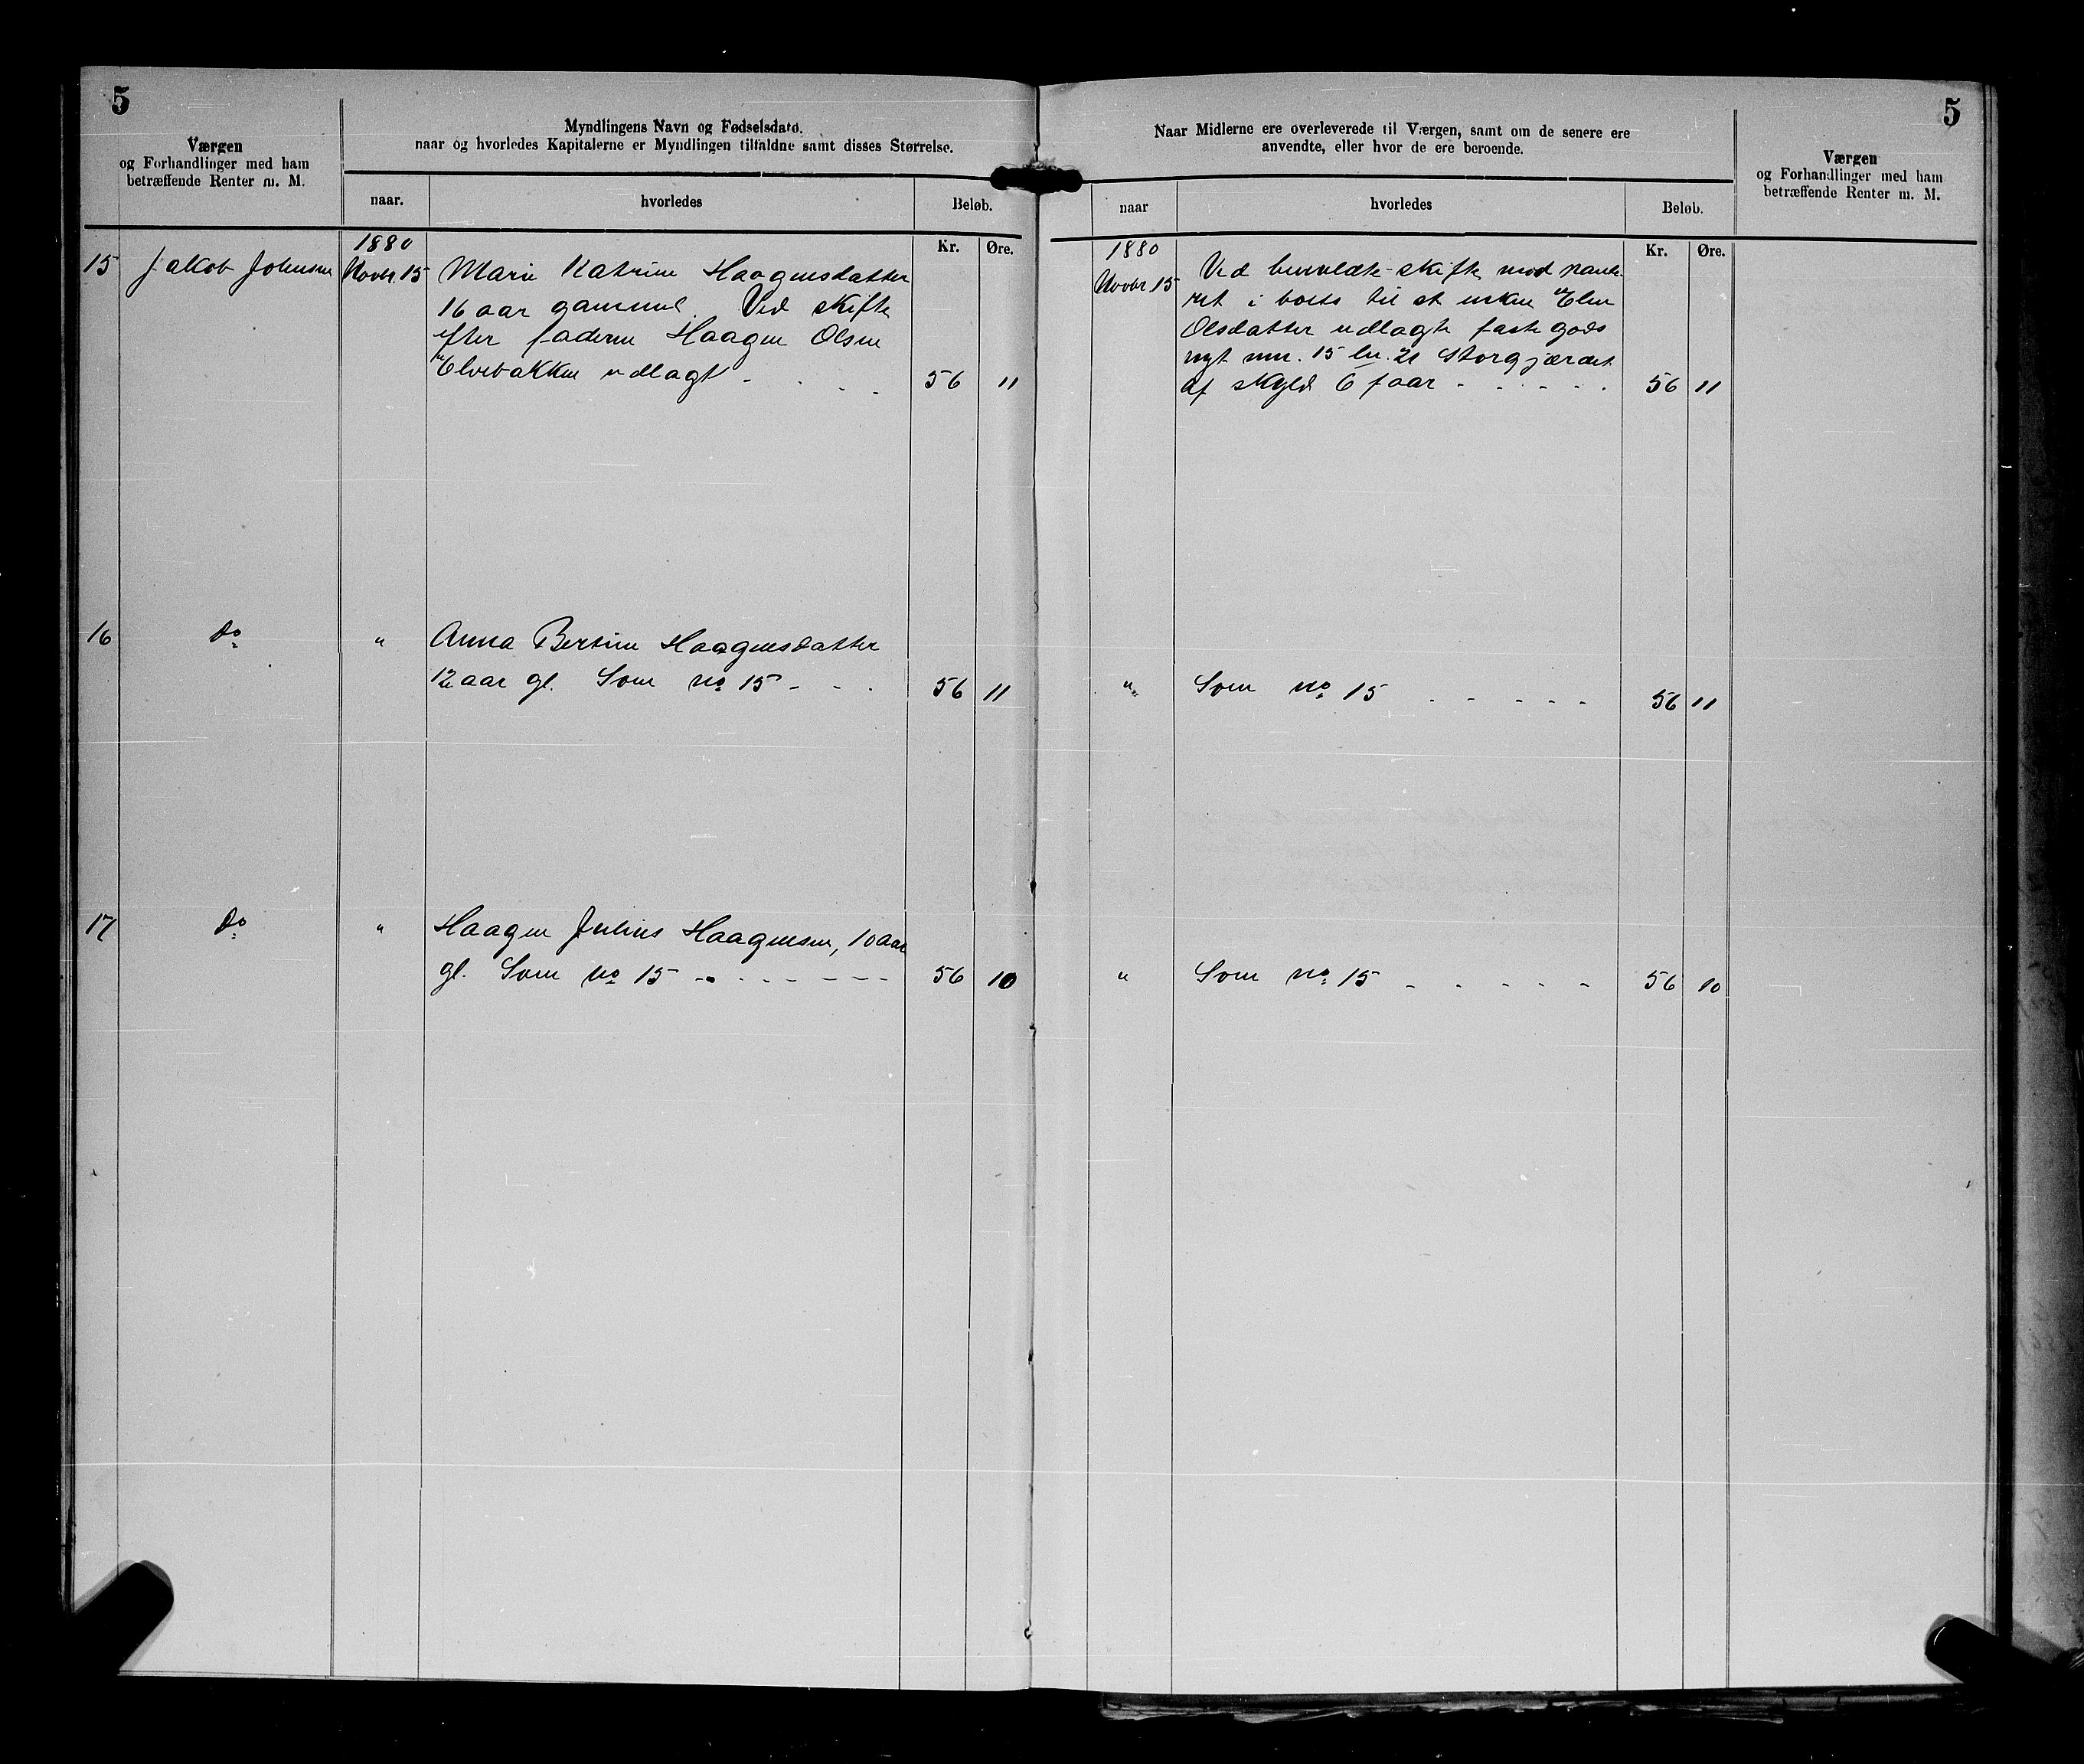 5
Værgen
og Forhandlinger med ham
betræffende Renter m. M.
Myndlingens Navn og Fødselsdato.
naar og hvorledes Kapitalerne er Myndlingen tilfaldne samt disses Størrelse.
naar. hvorledes Beløb.
Kr. Øre.
1880
15 Jakob Johnsen Novbr. 15 Marie Katrine Haagensdatter
16 aar gammel. Ved skifte
efter faderen Haagen Olsen
Elvebakken udlagt - - - - 56 11
16 do " Anna Bertine Haagensdatter
12 aar gl. Som no 15 - - . 56 11
17 do " Haagen Julius Haagensen, 10 aar
gl. Som no 15 - - - - - - - 56 10
5
Naar Midlerne ere overleverede til Værgen, samt om de senere ere
anvendte, eller hvor de ere beroende.
Værgen
og Forhandlinger med ham
betræffende Renter m. M.
naar hvorledes Beløb.
Kr. Øre.
1880
Novbr. 15 Ved skifte mod
ret i boets til et enken Elen
Olsdatter udlagte faste gods
nyt mn. 15 ln. 21 Storgjærdet
af skyld 6 - - - - - 56 11
" Som no 15 - - - - - 56 11
" Som no 15 - - - - - 56 10